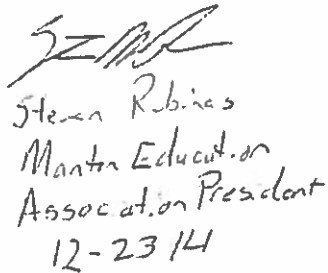 Steven Rubinas
Manton Education
Association President
12-23 14